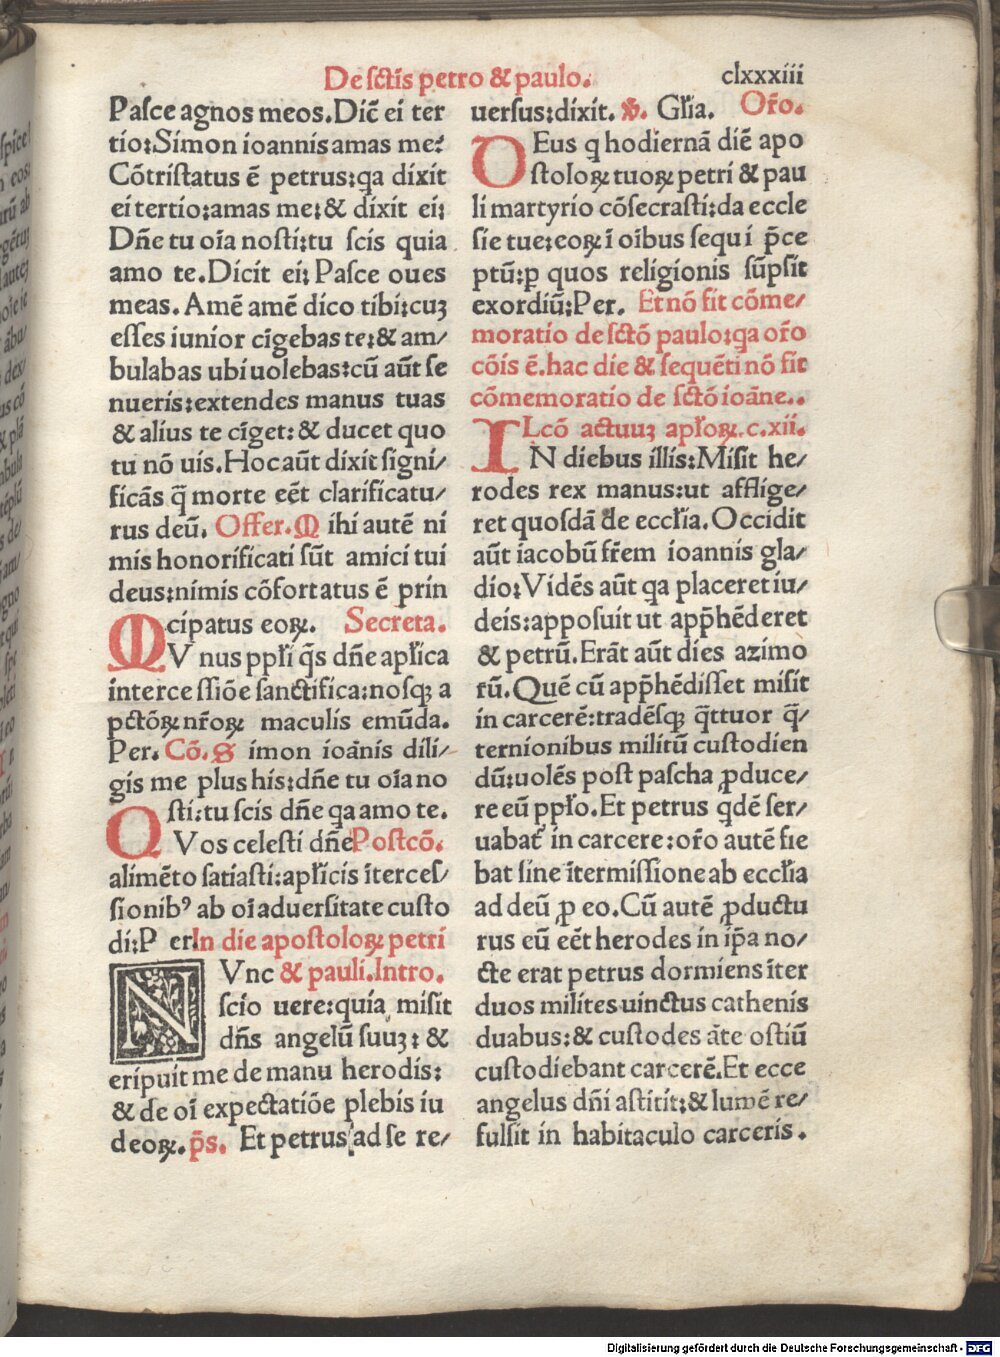 De sctīs petro & paulo.
clxxxiii
Paſce agnos meos.Dic̄ ei ter
tio:Simon ioannis amas me?
Cōtriſtatus ē petrus:qa dixit
ei tertio:amas me:& dixit ei:
Dn̄e tu oīa noſti:tu ſcis quia
amo te.Dicit ei:Paſce oues
meas.Amē amē dico tibi:cuꝫ
eſſes iunior cīgebas te:& am/
bulabas ubi uolebas:cū aūt ſe
nueris:extendes manus tuas
& alius te cīget:& ducet quo
tu nō uis.Hoc aūt dixit ſigni/
ficās q̄ morte eēt clarificatu/
rus deū. Offer. M ihi autē ni
mis honorificati ſūt amici tui
deus:nimis cōfortatus ē prin
cipatus eoꝝ. Secreta.
MV nus pp̄li q̄s dn̄e apl̄ica
interceſſiōe ſanctifica:noſqꝫ a
pctōꝝ nr̄oꝝ maculis emūda.
Per. Cō. S imon ioānis dili/
gis me plus his:dn̄e tu oīa no
ſti:tu ſcis dn̄e qa amo te.
QVos celeſti dn̄e Poſtcō.
alimēto ſatiaſti:apl̄icis īterceſ/
ſionibꝰ ab oī aduerſitate cuſto
di:P er In die apoſtoloꝝ petri
NVnc & pauli.Intro.
ſcio uere:quia miſit
dn̄s angelū ſuuꝫ: &
eripuit me de manu herodis:
& de oī expectatiōe plebis iu
deoꝝ. p̄s. Et petrus ad ſe re/
uerſus:dixit. ℣. Gl̄ia. Or̄o.
DEus q hodiernā diē apo
ſtoloꝝ tuoꝝ petri & pau
li martyrio cōſecraſti:da eccle
ſie tue:eoꝝ ī oībus ſequi p̄ce
ptū:ꝑ quos religionis ſūpſit
exordiū:Per. Et nō fit cōme/
moratio de ſctō paulo:qa or̄o
cōis ē.hac die & ſequēti nō fit
cōmemoratio de ſctō ioāne..
Lcō actuuꝫ apl̄oꝝ.c.xii.
IN diebus illis:Miſit he/
rodes rex manus:ut afflige/
ret quoſdā de eccl̄ia.Occidit
aūt iacobū fr̄em ioannis gla/
dio:Vidēs aūt qa placeret iu/
deis:appoſuit ut app̄hēderet
& petrū.Erāt aūt dies azimo
rū.Quē cū app̄hēdiſſet miſit
in carcerē:tradēſqꝫ q̄ttuor q̄/
ternionibus militū cuſtodien
dū:uolēs poſt paſcha ꝓduce/
re eū pp̄lo.Et petrus qdē ſer/
uabat̄ in carcere:or̄o autē fie
bat ſine ītermiſſione ab eccl̄ia
ad deū ꝓ eo.Cū autē ꝓductu
rus eū eēt herodes in ip̄a no/
cte erat petrus dormiens īter
duos milites uinctus cathenis
duabus:& cuſtodes āte oſtiū
cuſtodiebant carcerē.Et ecce
angelus dn̄i aſtitit:& lumē re/
fulſit in habitaculo carceris.
Digitalisierung gefördert durch die Deutsche Forschungsgemeinschaft - DFG